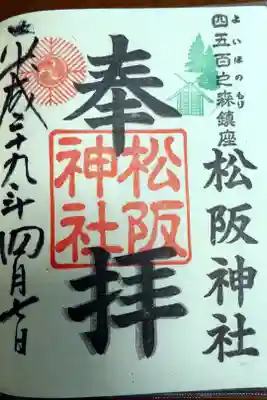 四五百之森鎮座
よいほのもり
松阪神社
奉拝
松阪
神社
平成二十九年四月七日